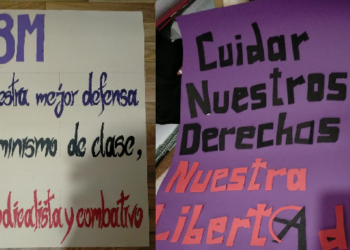 8M
estra mejor defensa
minismo de clase,
dicalista y combativo
Cuidar
Nuestros
Derechos
Nuestra
LibertAd